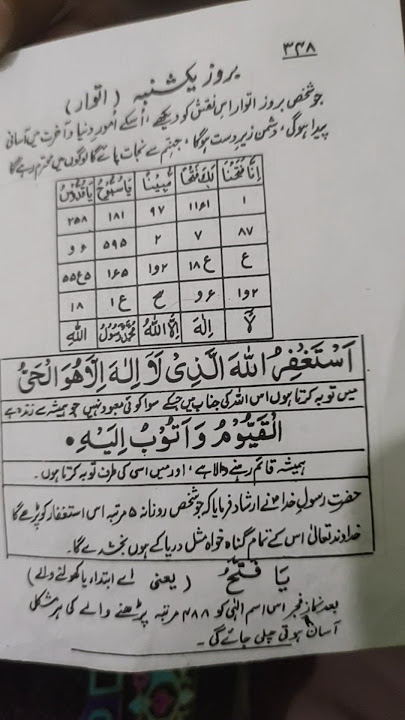 ۳۳۸
بروز یکشنبہ (اتوار)
جو شخص بروز اتوار اس نقش کو دیکھے، اُسکے اُمورِ دنیا و آخرت میں آسانی
پیدا ہوگی، دشمن زیر دست ہوگا، جہنم سے نجات پائے گا لوگوں میں محترم رہے گا
اِنَّا فَتَحْنَا لَکَ فَتْحًا مُّبِیْنًا یَاسُبُّوْحُ یَاقُدُّوْسُ
۱ ۱۱ و۱ ۹۷ ۱۸۱ ۲۵۸
۸۷ ۷ ۲ ۵۹۵ و و
ع ۱۸ ع ۲ و۱ ۱۶۵ ۵۵ع۵
۲ و۱ و ۶ ح ۱ ع ۱۸
لَا اِلٰهَ اِلَّا اللهُ مُحَمَّدٌ رَّسُوْلُ اللهِ
اَسْتَغْفِرُ اللهَ الَّذِیْ لَا اِلٰهَ اِلَّا هُوَ الْحَیُّ
میں توبہ کرتا ہوں اس اللہ کی جناب میں جسکے سوا کوئی معبود نہیں جو ہمیشہ سے زندہ ہے
الْقَیُّوْمُ وَ اَتُوْبُ اِلَیْهِ۔
ہمیشہ قائم رہنے والا ہے، اور میں اسی کی طرف توبہ کرتا ہوں۔
حضرت رسولِ خداؐ نے ارشاد فرمایا کہ جو شخص روزانہ ۵ مرتبہ اس استغفار کو پڑھے گا
خداوند تعالیٰ اس کے تمام گناہ خواہ مثل دریا کے ہوں بخشدے گا۔
یَا فَتَّحُ (یعنی اے ابتداء یا کھولنے والے)
بعد نماز فجر اس اسم الٰہی کو ۴۸۸ مرتبہ پڑھنے والے کی ہر مشکل
آسان ہوتی چلی جائے گی۔